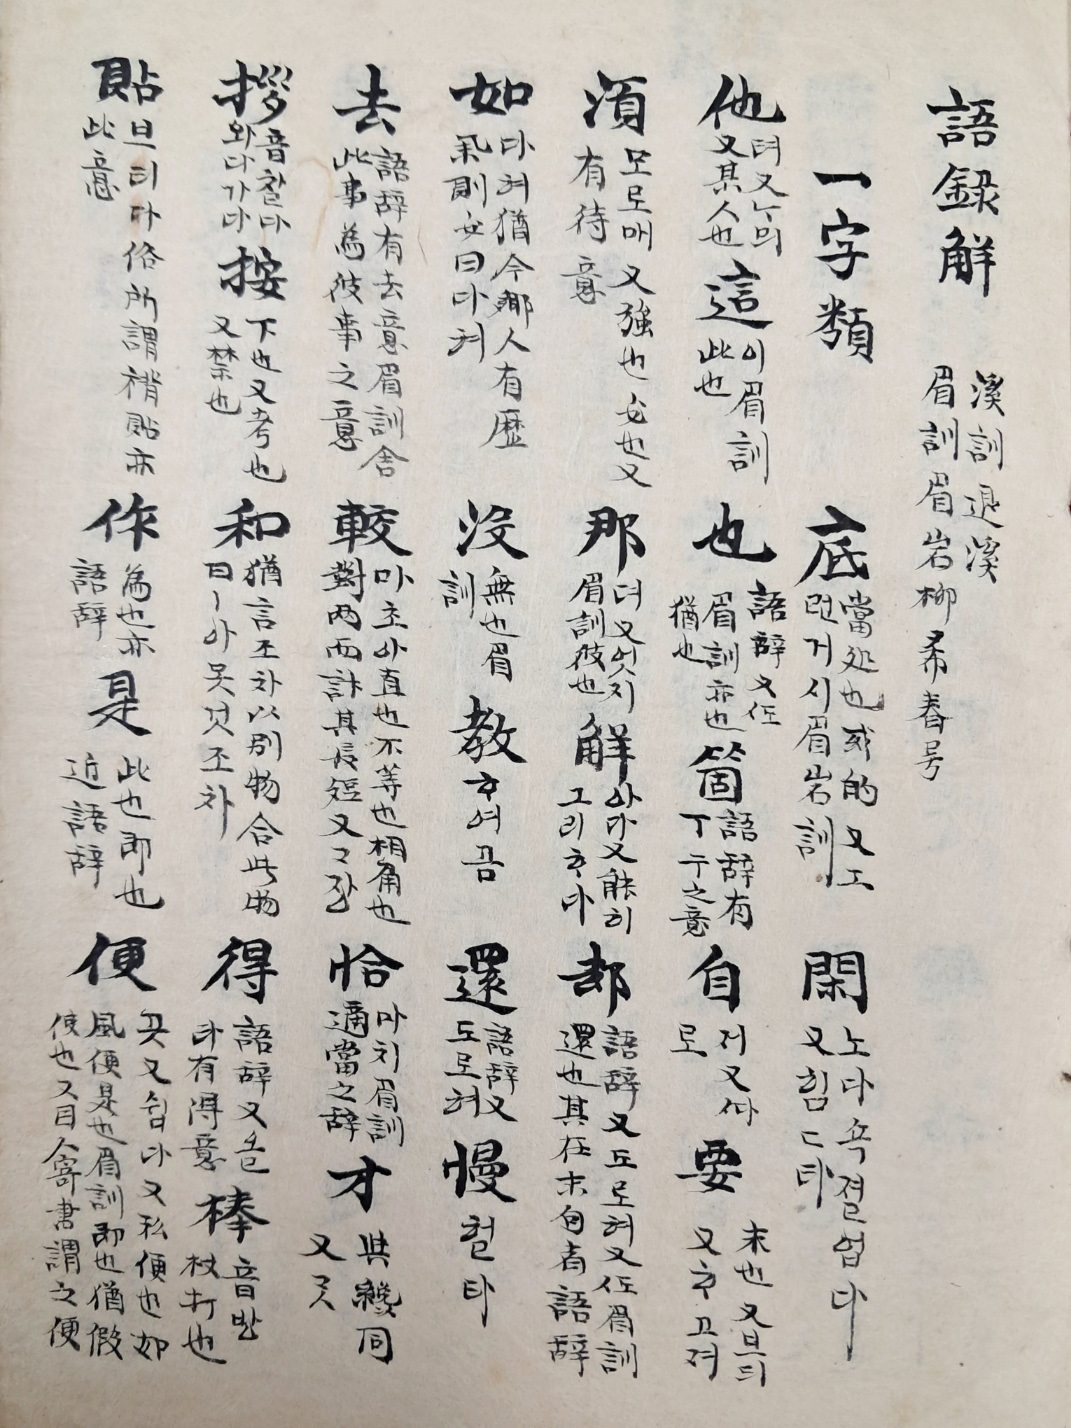 語録解 溪訓退溪 眉訓眉岩柳希春号
一字類 底 當處也或的又工 뎐거시眉岩訓 閑 노다 쇽졀업다 又힘
他 뎌又ᄂᆞᆷ의 又某人也 這 이眉訓 此也 也 語辞又在 眉訓亦也 猶也 箇 語辞有 丁ᄀᆞ之意 自 저又 로 要 末也又 又ᄒᆞ고져
湏 모로매又強也必也又 有待意 那 뎌又엇지 眉訓彼也 解 아다又能히 그리ᄒᆞ다 却 語辞又도로혀又在眉訓 還也其在末句者語辞
如 다혀猶今鄕人有歷 某則必曰다혀 没 無也眉 訓 教 ᄒᆞ여곰 還 語辞又 도로혀 慢 헐타
去 語辞有去意眉訓舍 此事為彼事之意 較 마초아直也不等也相角也 對兩而計其長短又ᄀᆞ장 恰 마치眉訓 適當之辞 才 與纔同 又ᄀᆞᆺ
拶 音찰다 와다가다 按 下也又考也 又禁也 和 猶言조차以別物合此物 曰 아못것조차 得 語辞又 有得意 棒 音방 杖打也
貼 브티다俗所謂褙貼亦 此意 作 為也亦 語辞 是 此也即也 近語辞 便 곳又쉽다又私便也如 風便是也眉訓即也猶假 使也又曰人寄書謂之便